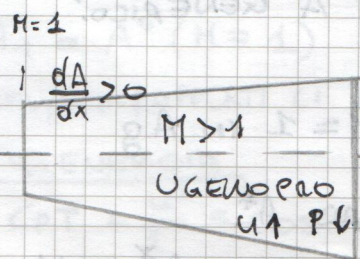 M=1
dA/dx > 0
M > 1
UGELLO PRO
u↑ P↓